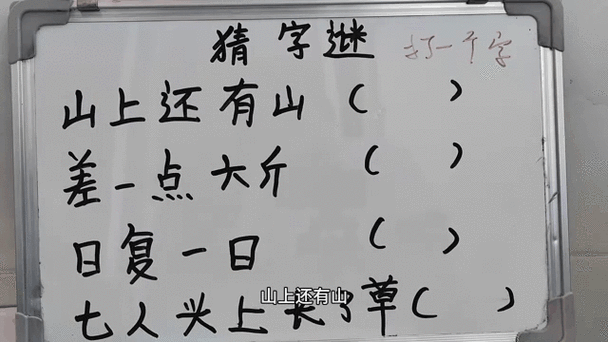 猜字谜 打一个字
山上还有山（ ）
差一点六斤（ ）
日复一日（ ）
七人头上长了草（ ）
山上还有山